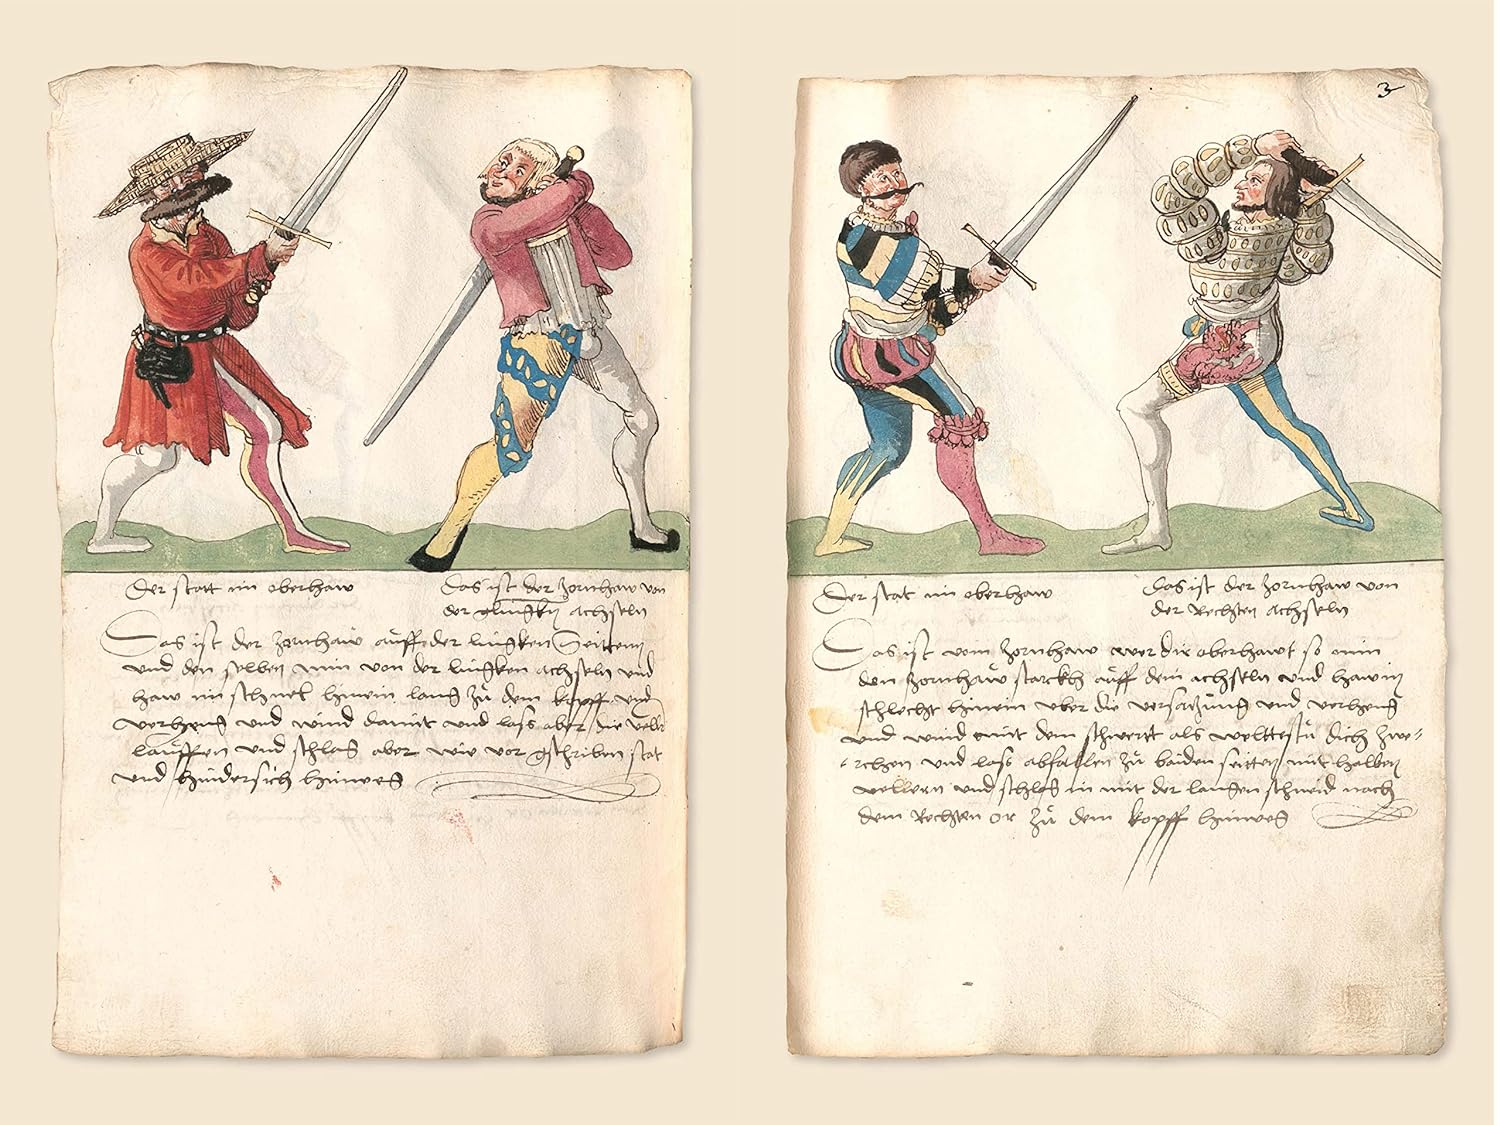 Der statt im oberhaw
Das ist der Zornhaw von
der glingkn achseln
Das ist der Zornhaw auff der lingken Seitten
und den selben nim von der lingken achseln und
haw im schnel hinein lang zu dem kopff und
verheng und wind damit und lass aber die
lauffen und schlag aber wie vor gschriben stat
und hindersich hinweg
3
Der stat im oberhaw
Das ist der Zornhaw von
der Rechten achseln
Das ist vom Zornhaw wer die oberhawt so nim
den Zornhaw starckh auff dein achseln und haw in
schlecht hinein uber die versatzung und verheng
und wind mit dem schwertt als welltestu dich zwe-
rchen und lass abfallen zu baiden seitten mit halben
vellern und schlag in mit der langen schneid nach
dem Rechten or zu dem kopff hinweg